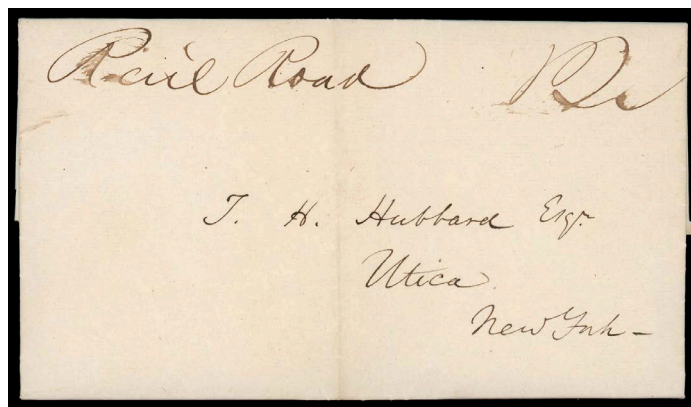 Rail Road
T. H. Hubbard Esqr.
Utica
New York -